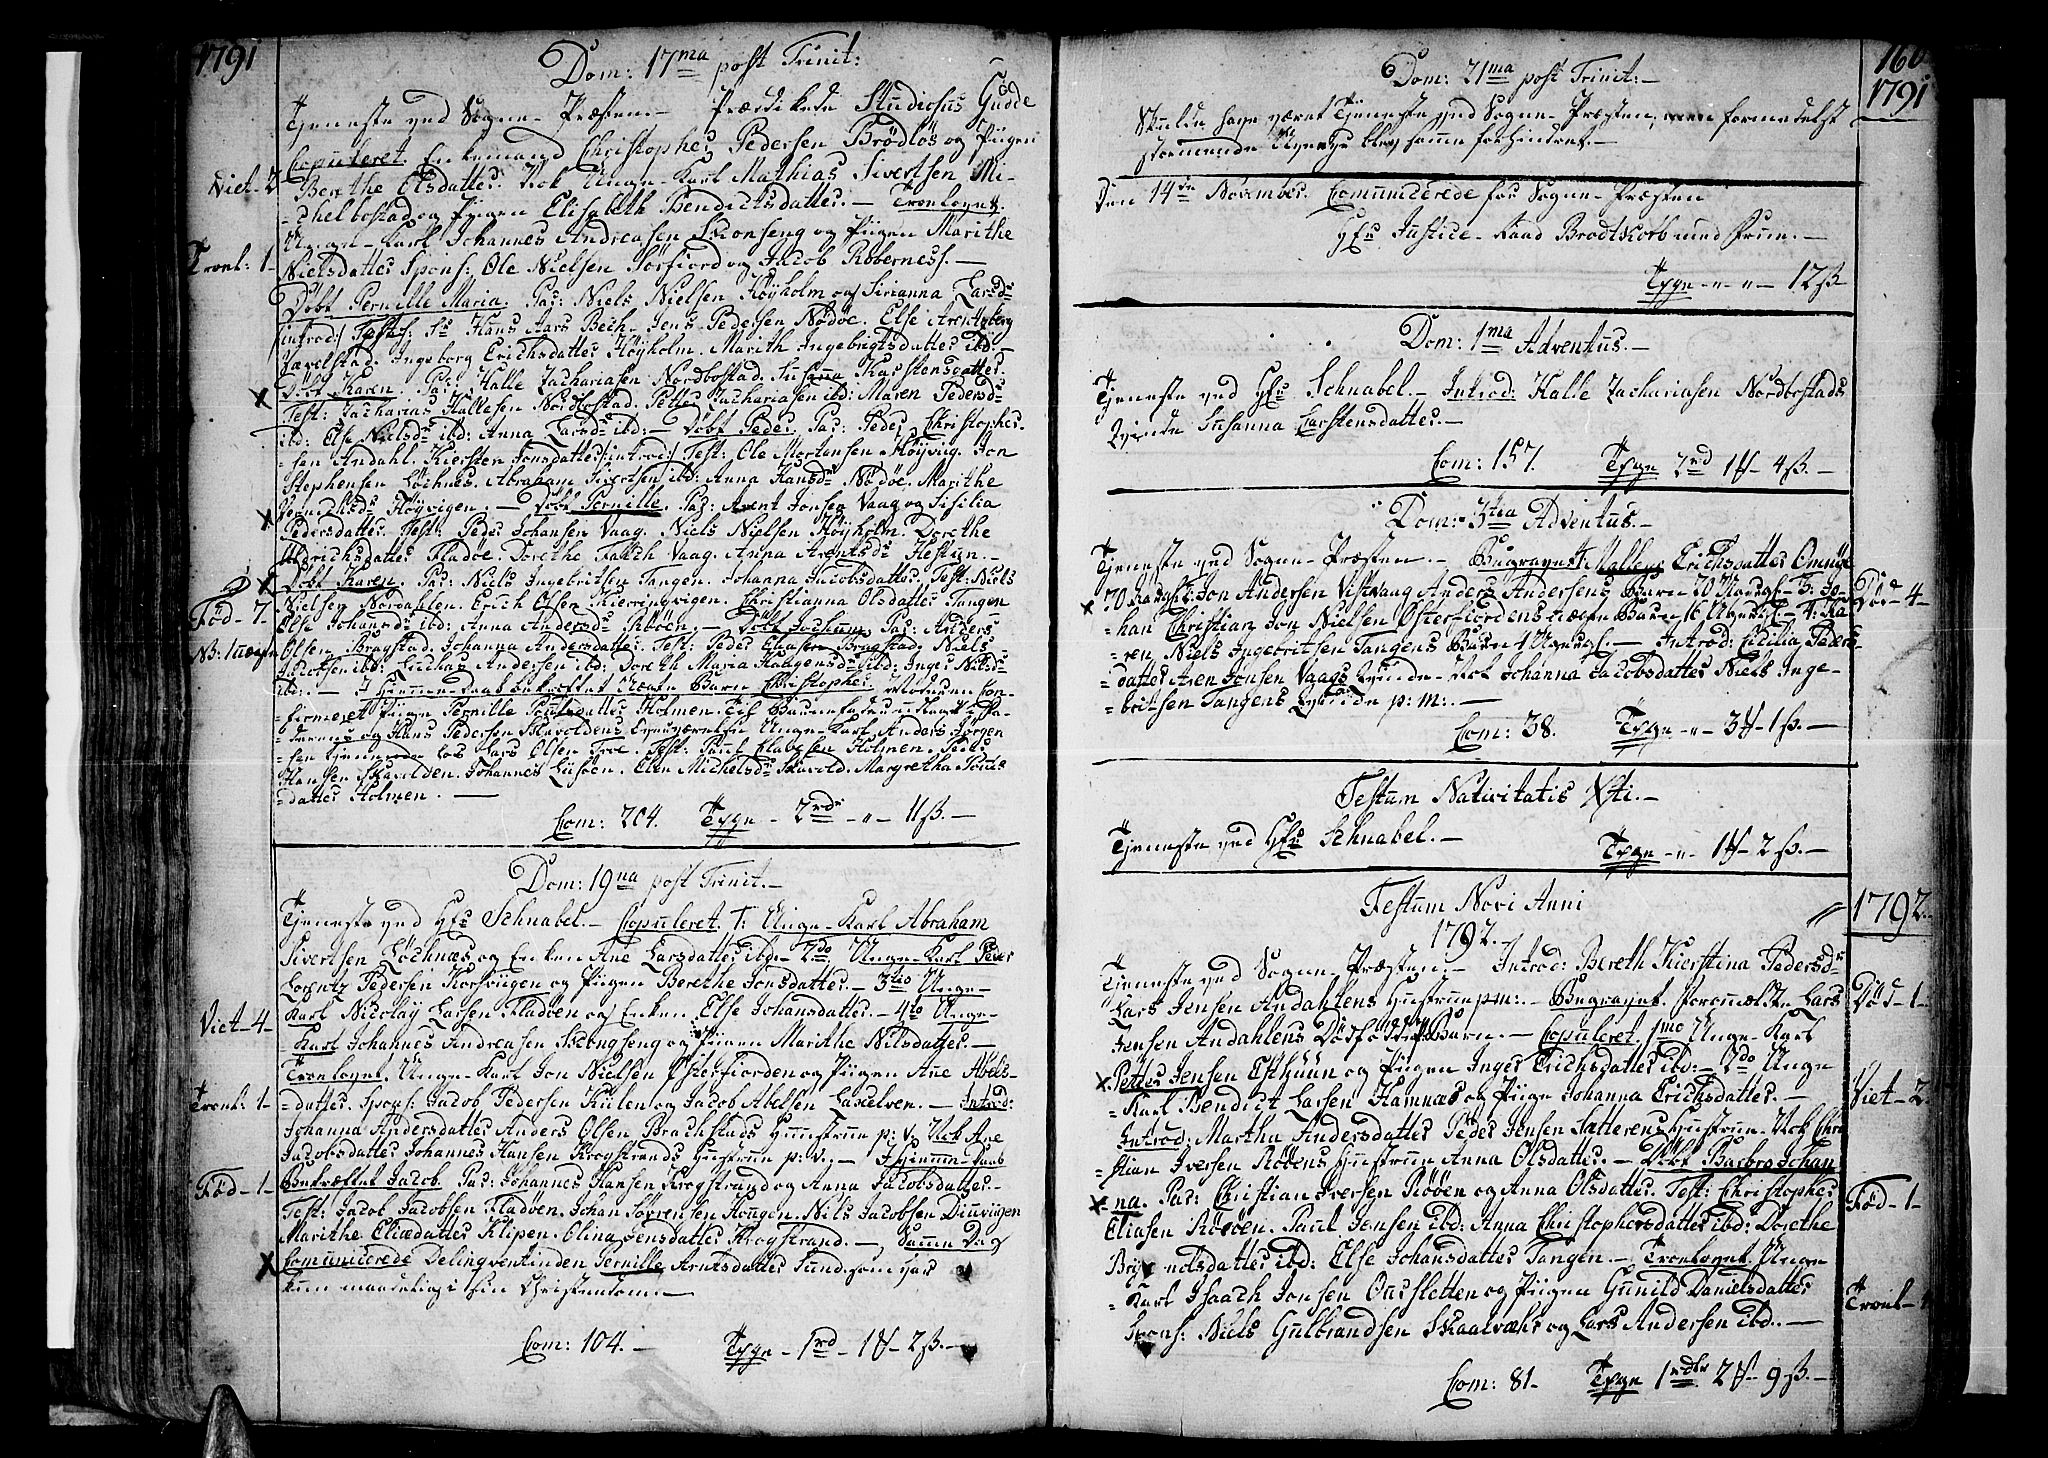 1791
Dom: 17ma post Trinit:
Tjeneste ved Sogne-Præsten. Prædikede Studiosus Gudde
Copuleret. Enkemand Christopher Pedersen Brødløs og Piigen
Viet-2
Berthe Olsdatter. Nok Unge-Karl Mathias Sivertsen Mi-
-chelbostad og Piigen Elisabeth Bendictsdatter. - Troelovet.
Unge-Karl Johannes Andreasen Skonseng og Piigen Marithe
Troel: 1-
Nielsdatter Spons: Ole Nielsen Sørfiord og Jacob Roberness. -
Døbt Pernille Maria. Par: Niels Nielsen Høyholm og Sirianna Larsdr
/introd:/ Test: Sr Hans Aars Bech. Jens Pedersen Nødøe. Else Arentzberg
Jævelstad. Ingeborg Erichsdatter Høyholm. Marith Ingebrigtsdatter ibd: -
x Døbt Karen. Par: Halle Zachariasen Nordbostad. Susanna Karstensdatter.
Test: Zacharias Hallesen Nordbostad. Petter Zachariasen ibd: Maren Pedersd-
ibd: Else Nielsdr ibd: Anna Larsdr ibd: - Døbt Peder. Par: Peder Christopher-
-sen Andahl. Kiersten Jonsdatter /introd:/ Test: Ole Mortensen Høyvig. Jon
Stephensen Løchnes. Abraham Sivertsen ibd: Anna Hansdr Nødöe. Marithe
x Høyvigen. - Døbt Pernille. Par: Arent Jonsen Vaag og Sisilia
Pedersdatter. Test: Peder Johansen Vaag. Niels Nielsen Høyholm. Dorethe
Uldrichsdatter Fladøe. Dorethe Falch Vaag. Anna Arentsdr Hestun. -
x Døbt Karen. Par: Niels Ingebritsen Tangen. Johanna Jacobsdatter. Test: Niels
Fød-7
Nielsen Nordahlen. Erich Olsen Kierringvigen. Christianna Olsdatter Tangen
Else Johansdr ibd: Anna Andersdr Röoen. - Døbt Jochum. Par: Anders
NB: 1 uægte
Olsen Bragstad. Johanna Andersdatter. Test: Peder Eliasen Bragstad. Niels
Jacobsen ibd: Zachar Andersen ibd: Doreth Maria Haagensdr ibd: Inger Nilsdr
ibd: - I Hiemme-daab bekræftet uægte Barn Christopher, Moderen con-
-firmeret Piige Pernille Poulsdatter Holmen.
derens og Hans Pedersen Skavoldens Unge-Karl Anders Jørgen
-sen tienende hos Lars Olsen Troe. Test: Paul Elavesen Holmen. Peder
Hansen Skavolden. Johannes Lusøen. Elen Michelsdr Skavold. Margretha Pouls
-datter Holmen. -
Com: 204. Tavle - 2rdr - " - 11 ß. -
Dom: 19na post Trinit. -
Tjeneste ved Hr Schnabel. - Copuleret 1: Unge-Karl Abraham
Sivertsen Löchnæs og Enken Ane Larsdatter ibd. - 2do Unge-Karl Peder
Lorentz Pedersen Korsvigen og Piigen Berethe Jonsdatter. - 3tio Unge-
Viet-4-
Karl Nicolay Larsen Fladøen og Enken Else Johansdatter. - 4to Unge-
Karl Johannes Andreasen Skongseng og Piigen Marithe Nilsdatter. -
Troelovet. Unge-Karl Jon Nielsen Østerfiorden og Piigen Ane Abels-
Troel: 1-
-datter. Spons: Jacob Pedersen Kulen og Jacob Abelsen Laxelven. - Introd:
Johanna Andersdatter Anders Olsen Brachstads Huustrue p: v. Nok Ane
Jacobsdatter Johannes Hansen Krogstrands Hustrue p: v. - Hiemme-Daab
Fød-1-
Bekræftet Jacob. Par: Johannes Hansen Krogstrand og Anna Jacobsdatter. -
Test: Jacob Jacobsen Fladöen. Johan Sørensen Hougen. Nils Jacobsen Diuvigen
Marithe Eliædatter Klipen. Olina Jensdatter Krogstrand. - Samme Dag
x Comunicerede Delinqventinden Pernille Arntsdatter Sund. som var
kun maadelig i sin Christendom. -
Com: 104. - Tavle - 1rd - 1 - 2 ß. -
160
1791
Dom: 21ma post Trinit: -
Skulde have været Tjeneste ved Sogne-Præsten, men formedelst
stormende blev samme forhindret. -
Den 14de November. Comunicerede for Sogne-Præsten
Hr Justice-Raad Brodtkorb med Frue. -
Tavle - " - " - 12 ß.
Dom: 1ma Adventus. -
Tjeneste ved Hr Schnabel. - Introd: Halle Zachariasen Nordbostads
Qvinde Susanna Carstensdatter. -
Com: 157. Tavle 2rd 1 - 4 ß. -
Dom: 3tia Adventus. -
Tjeneste ved Sogne-Præsten. - Begravet 1: Erichsdatter
Død-4-
x 70 Aar gl: Jon Andersen Vistvaag Anders Andersens Barn 3: Jo-
-han Christian Jon Nielsen Østerfiordens uægte Barn 16 Uger gl: - 4: Ka-
-ren, Niels Ingebritsen Tangens Barn 4 Uger gl: - Introd: Cicilia Peders-
-datter Aren Jonsen Vaags Qvinde. - Nok Johanna Jacobsdatter Niels Inge-
-britsen Tangens Qvinde p: m: -
Com: 38. Tavle - " - 3 - 1 ß. -
Festum Nativitatis Xti. -
Tjeneste ved Hr Schnabel. - Tavle - " - 1 - 2 ß. -
Festum Novi Anni
1792.
1792.
Tjeneste ved Sogne-Præsten. - Introd: Bereth Kierstina Pedersdr
Død-1-
Lars Jensen Andahlens Hustrue p: m: - Begravet. Foromældte Lars
Jensen Andahlens Dødfødde Barn. - Copuleret. 1mo Unge-Karl
x Petter Jensen Esthuun og Piigen Inger Erichsdatter ibd: - 2do Unge
Viet-2.
-Karl Bendict Larsen Hamnæs og Piige Johanna Erichsdatter. -
Introd: Martha Andersdatter Peder Jensen Sætterens Hustrue. Nok Chri-
-stian Iversen Röoens Hustrue Anna Olsdatter. - Døbt Barbro Johan
x -na. Par: Christian Iversen Röoen og Anna Olsdatter. Test: Christopher
Fød-1-
Eliasen Röoen. Paul Jensen ibd: Anna Christophersdatter ibd: Dorethe
ibd: Else Johansdatter Tangen. - Troelovet. Unge
-Karl Isaach Jonsen Ousletten og Piigen Gunild Danielsdatter
Troel-1
Spons: Niels Gulbrandsen Skaalvahr og Lars Andersen ibd. -
Com: 81- Tavle 1rdr 2 - 9 ß. -